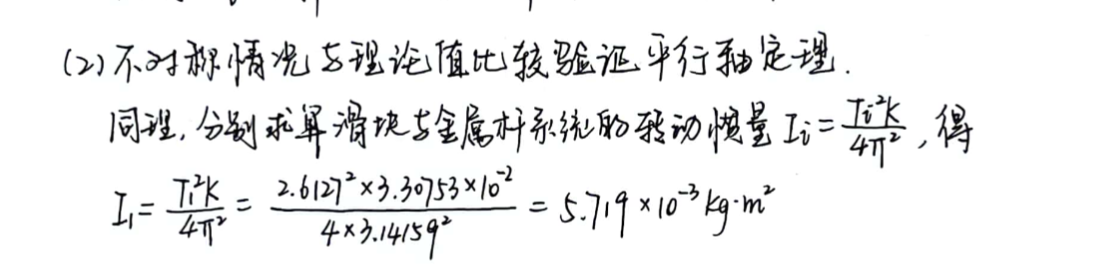 (2)不对称情况与理论值比较验证平行轴定理.
同理,分别求算滑块与金属杆系统的转动惯量 Iᵢ = Tᵢ²K / 4π² , 得
I₁ = T₁²K / 4π² = 2.6127² × 3.30753 × 10⁻² / 4 × 3.14159² = 5.719 × 10⁻³ kg·m²